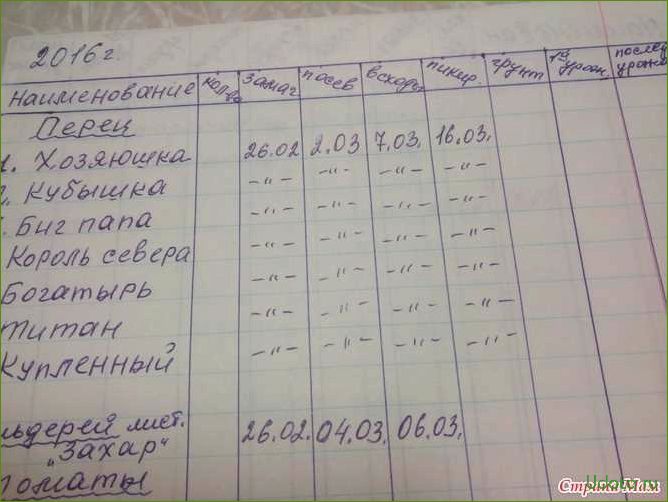 2016г.
Наименование кол-во замач посев всходы пикир. грунт 1й урож. послед урожа
Перец
1. Хозяюшка 26.02 2.03 7.03. 16.03.
2. Кубышка -"- -"- -"- -"-
. Биг папа -"- -"- -"- -"-
Король севера -"- -"- -"- -"-
Богатырь -"- -"- -"- -"-
Титан -"- -"- -"- -"-
Купленный -"- -"- -"- -"-
льдерей лист. 26.02. 04.03. 06.03.
"Захар"
томаты
Страна Мам